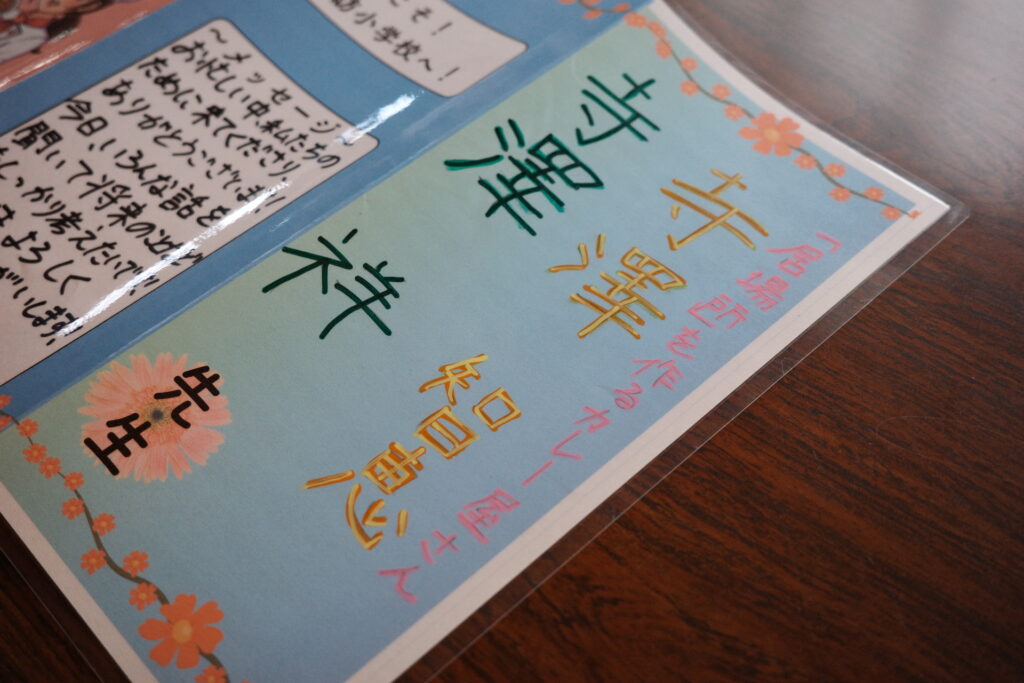 こそ！
防小学校へ！
「居場所を作るカレー屋さん
寺澤 絹恵
寺澤 祥
先生
〜メッセージ
お忙しい中私たちの
ために来てくださり、
ありがとうございます！
今日、いろんな話を
聞いて将来のこと
しっかり考えたいです！
はよろしく
がいします！